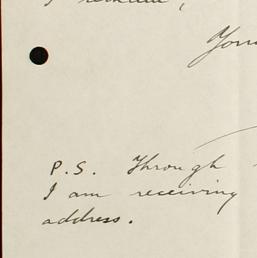 I remain,
P.S. Through
I am receiving
address.